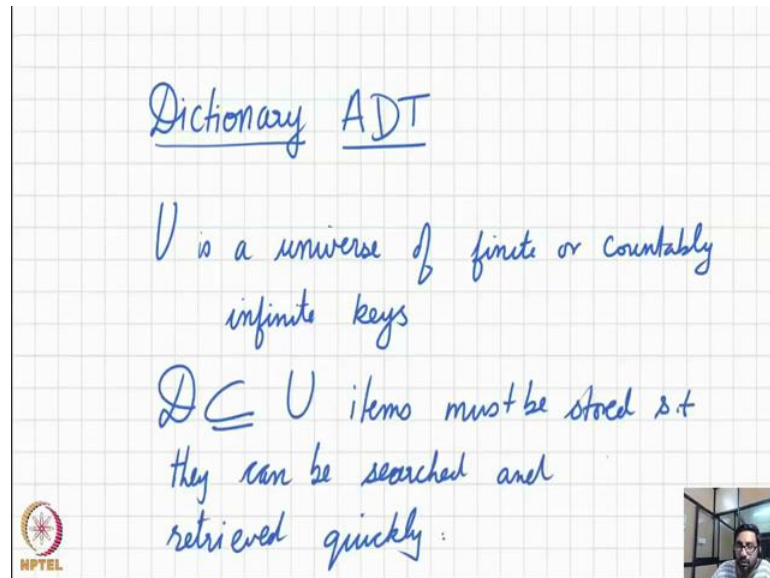 Dictionary ADT
U is a universe of finite or countably
infinite keys
D ⊆ U items must be stored s.t
they can be searched and
retrieved quickly.
NPTEL